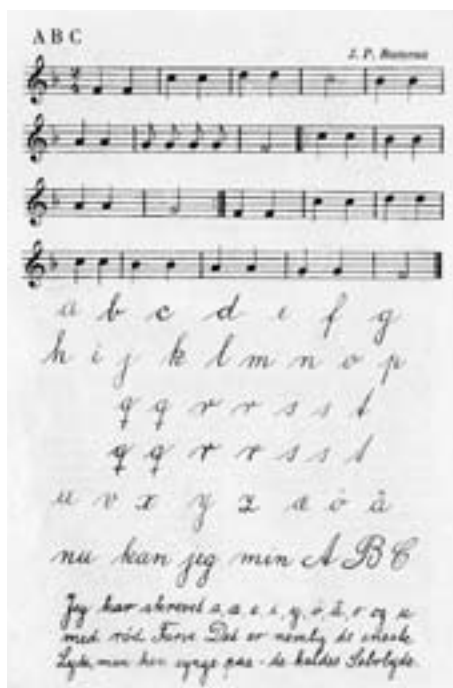 A B C
J. P.
a b c d e f g
h i j k l m n o p
q q r r s s t
q q r r s s t
u v x y z æ ö å
nu kan jeg min A B C
Jeg har skrevet a, æ, e, i, y, ö, å, o og u
med röd Farve Det er nemlig de eneste
Lyde, man kan synge paa - de kaldes Selvlyde.